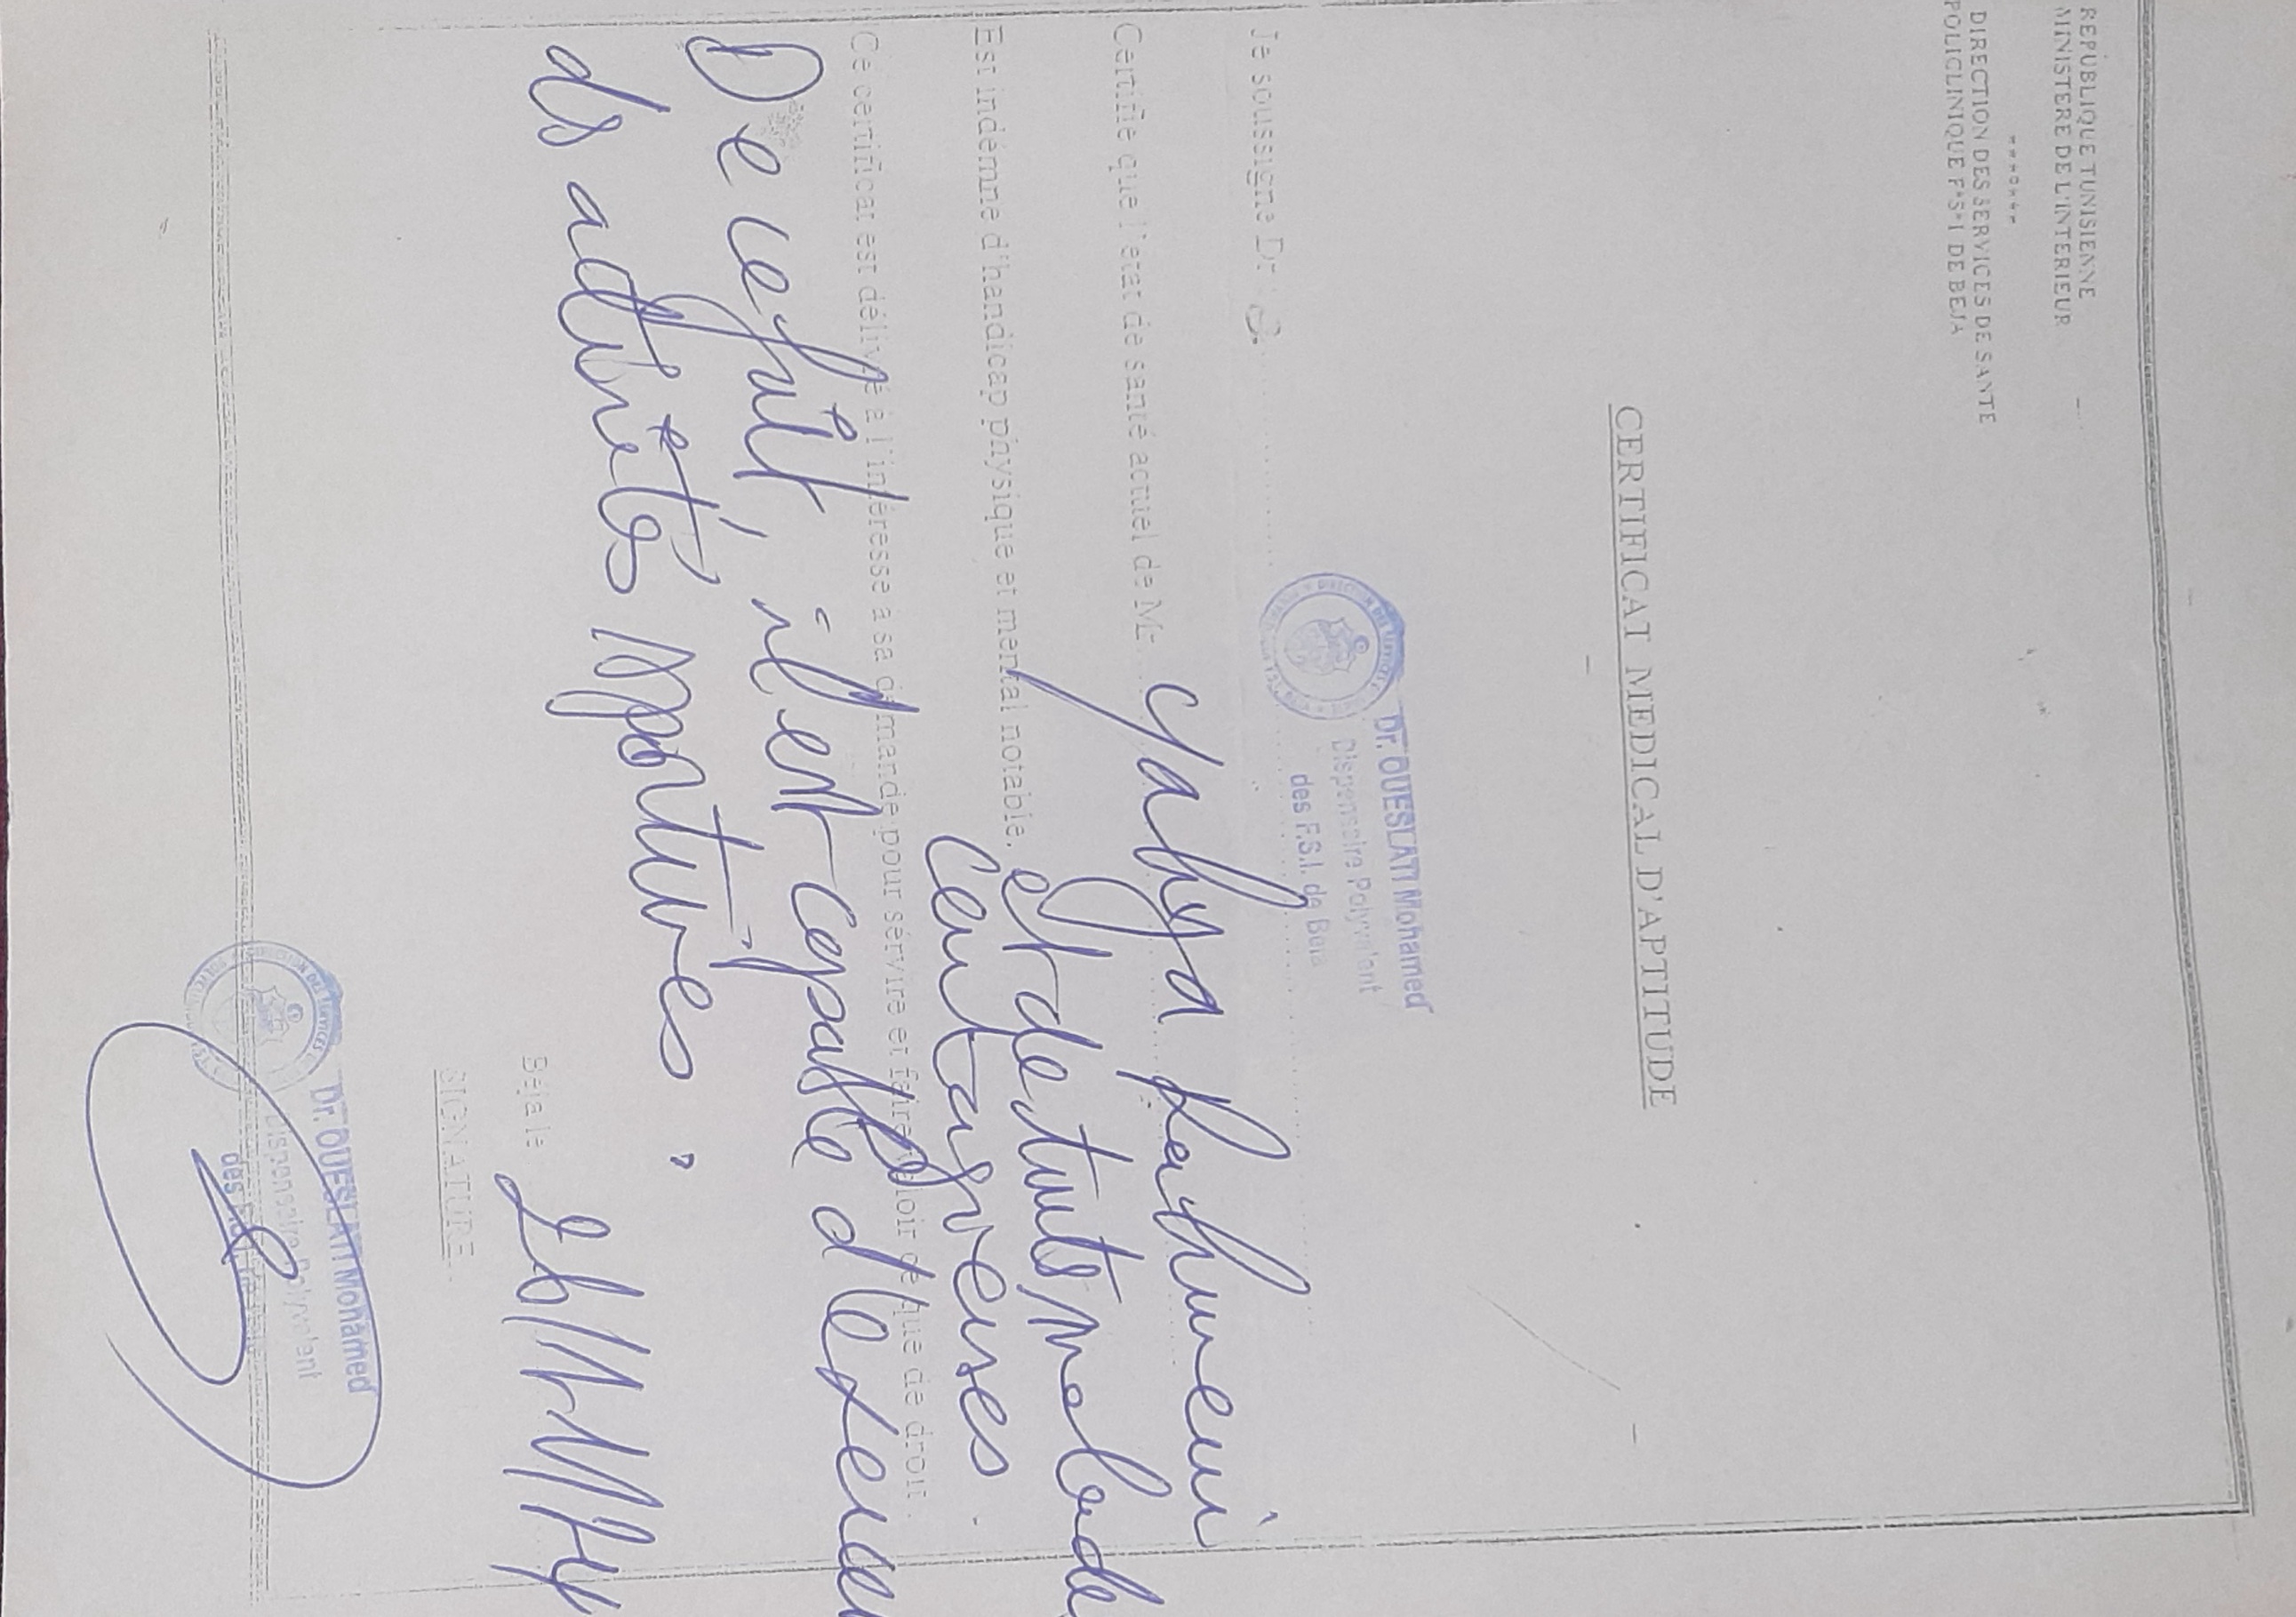 REPUBLIQUE TUNISIENNE
MINISTERE DE L'INTERIEUR
DIRECTION DES SERVICES DE SANTE
POLICLINIQUE F*S*I DE BEJA
CERTIFICAT MEDICAL D'APTITUDE
Dr. OUESLATI Mohamed
Dispensaire Polyvalent
des F.S.I. de Beja
Je soussigne Dr :
Certifie que l'état de santé actuel de Mr yahya
Est indémne d'handicap physique et mental notable. et de toute maladie
contagieuses .
Ce certificat est délivré à l'intéressé à sa demande pour sérvire et faire valoir ce que de droit.
De ce fait, il est capable d'exercer
des activités sportives .
Béja le
SIGNATURE
Dr. OUESLATI Mohamed
Dispensaire Polyvalent
des